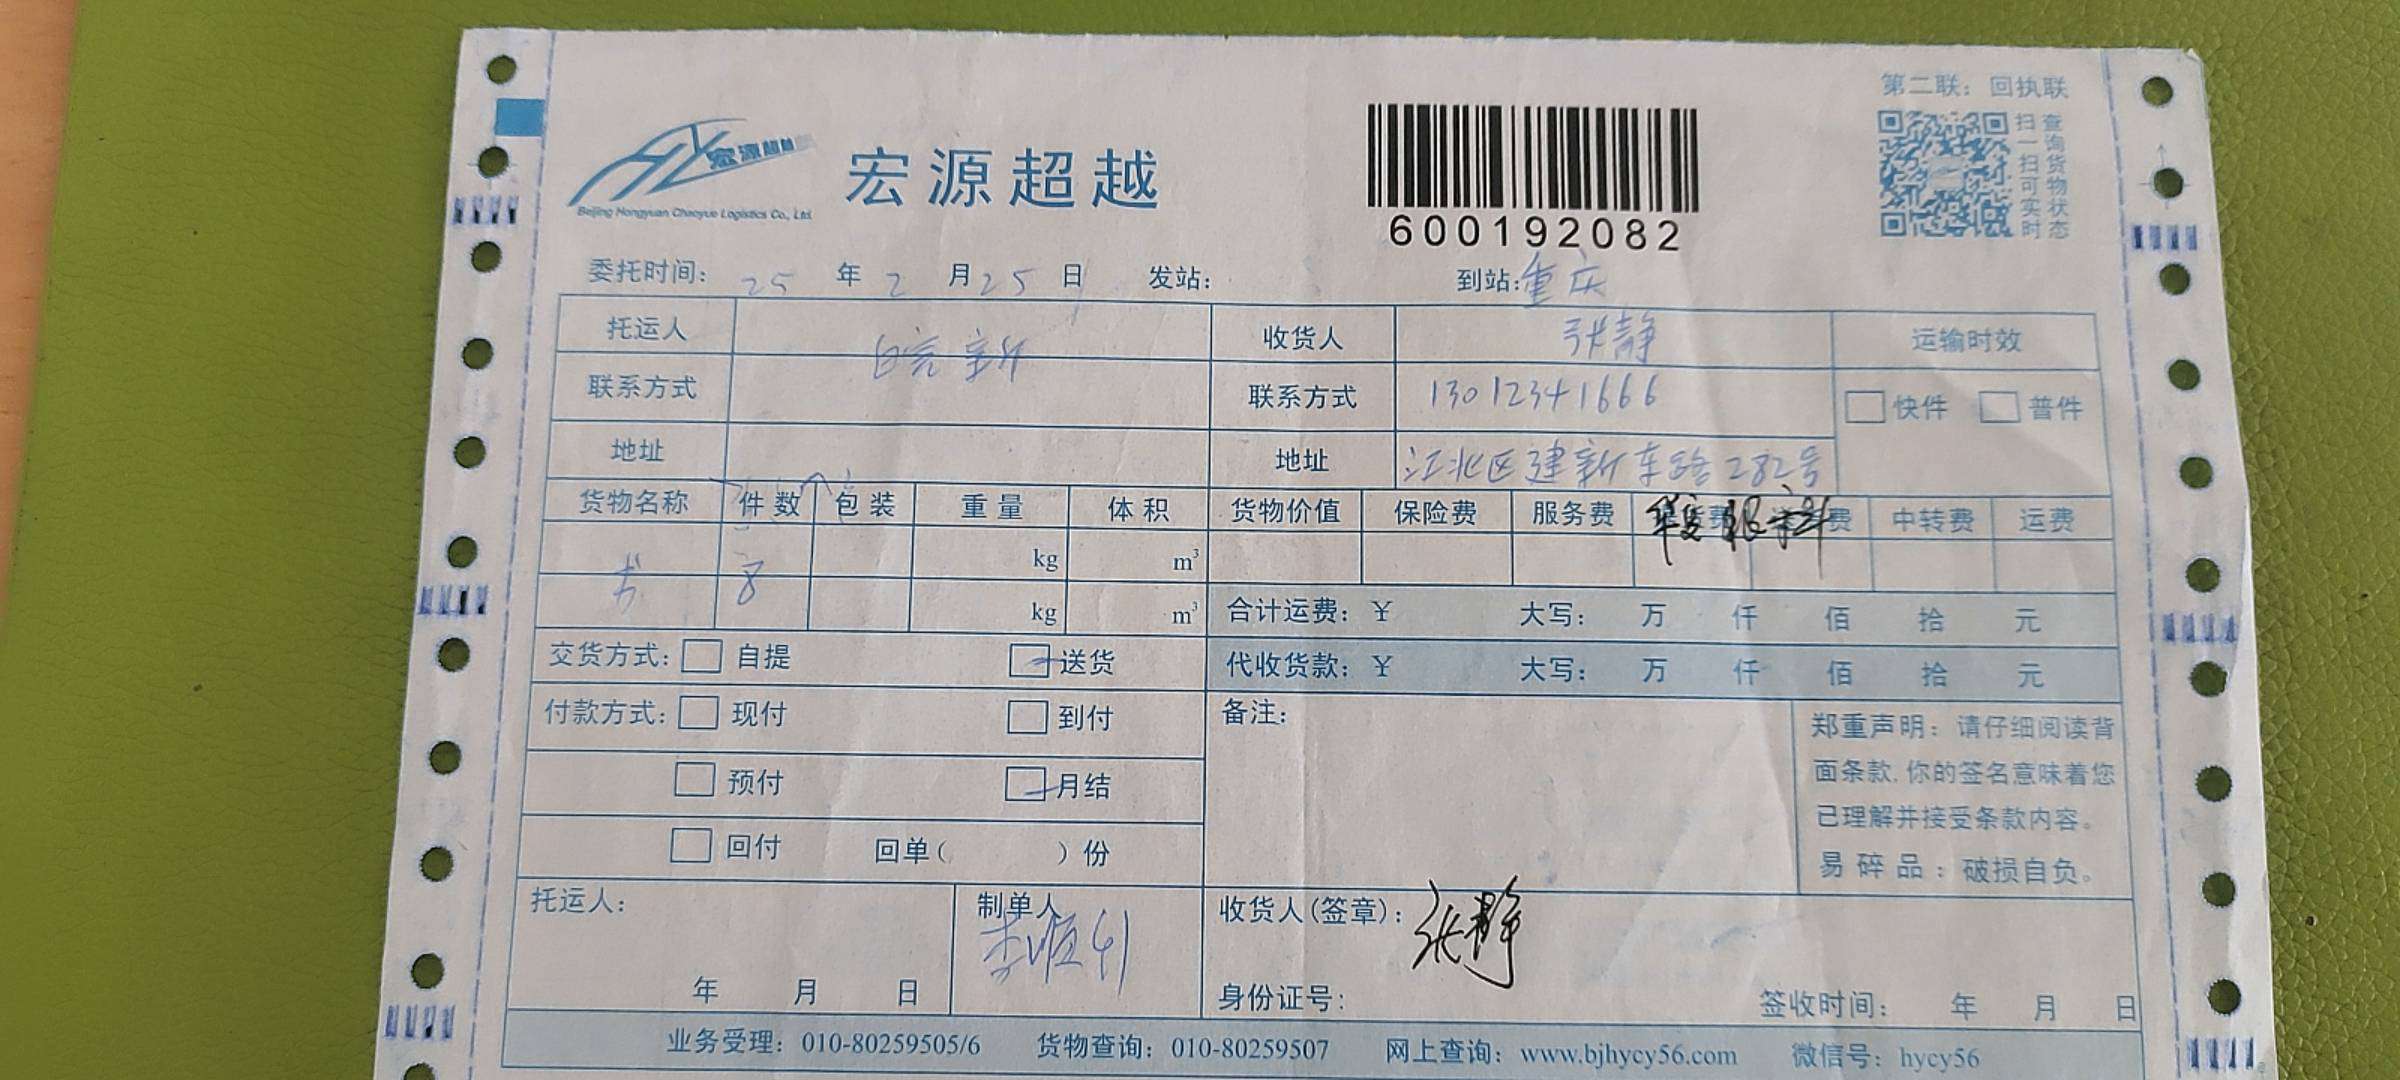 第二联：回执联
宏源超越
Beijing Hongyuan Chaoyue Logistics Co., Ltd.
宏源超越
600192082
扫一扫可实时
查询货物状态
委托时间： 25 年 2 月 25 日 发站： 到站：重庆
托运人 收货人 张静 运输时效
联系方式 联系方式 13012341666 快件 普件
地址 地址 江北区建新东路282号
货物名称 件数 包装 重量 体积 货物价值 保险费 服务费 费 费 中转费 运费
kg m³
书 8 kg m³
合计运费：￥ 大写： 万 仟 佰 拾 元
交货方式： 自提 送货
代收货款：￥ 大写： 万 仟 佰 拾 元
付款方式： 现付 到付
预付 月结
回付 回单（ ）份
备注：
郑重声明：请仔细阅读背
面条款,你的签名意味着您
已理解并接受条款内容。
易碎品：破损自负。
托运人：
年 月 日
制单人
收货人(签章)：张静
身份证号：
签收时间： 年 月 日
业务受理：010-80259505/6 货物查询：010-80259507 网上查询：www.bjhycy56.com 微信号：hycy56